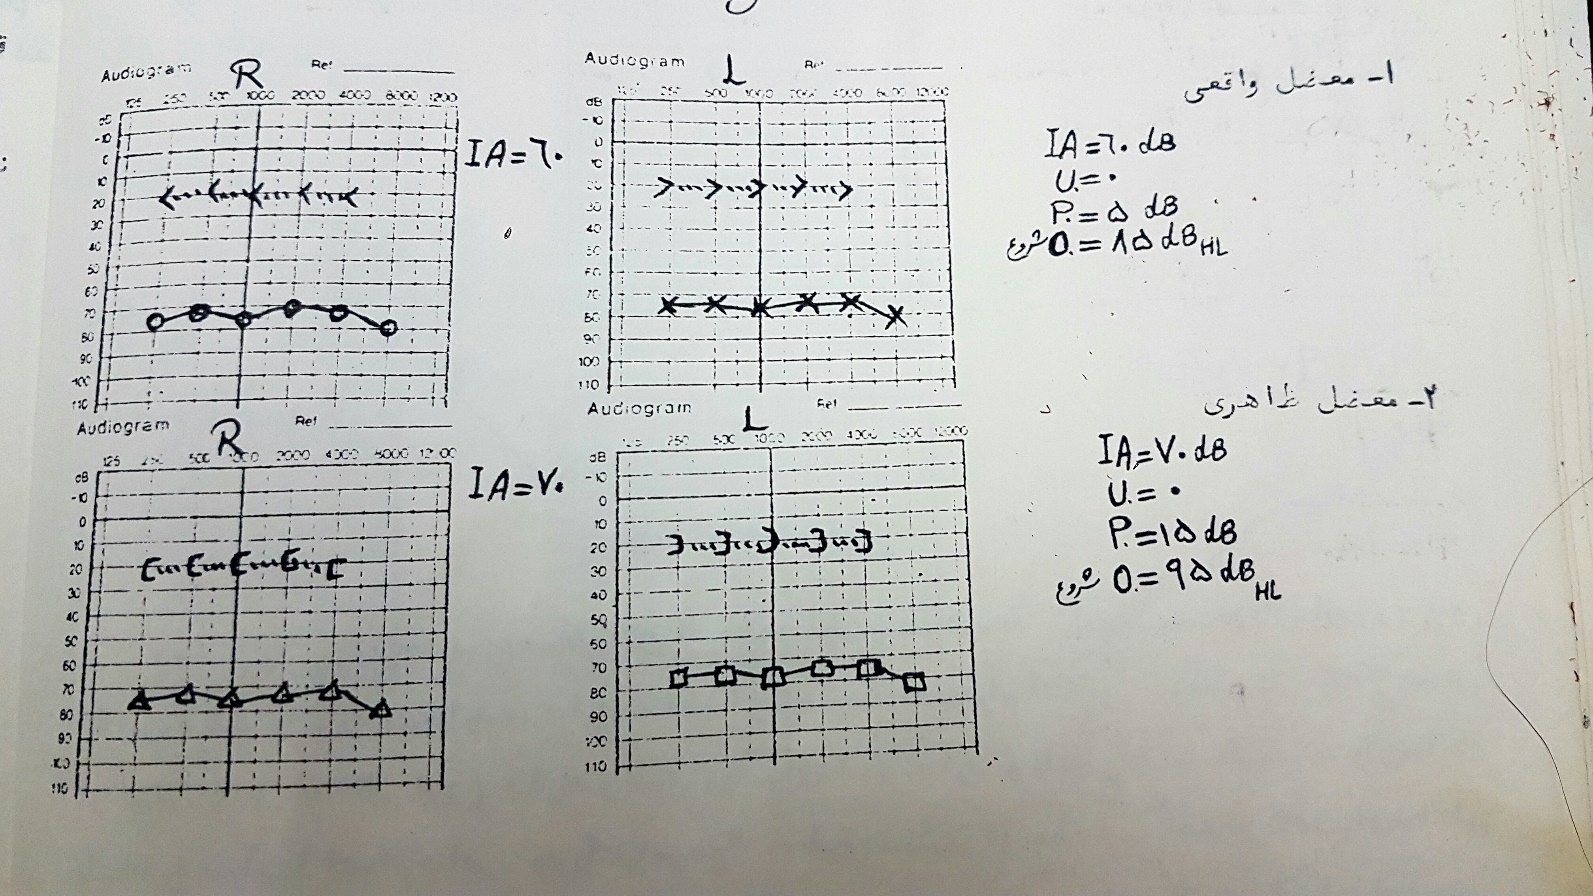 Audiogram R Ref
125 250 500 1000 2000 4000 8000 1200
dB
-10
0
10
20
30
40
50
60
70
80
90
100
110
IA=٦٠
Audiogram L Ref
125 250 500 1000 2000 4000 8000 12000
dB
-10
0
10
20
30
40
50
60
70
80
90
100
110
۱- معضل واقعی
IA=٦٠ dB
U.=٠
P.=۵ dB
شروع O.=۸۵ dB HL
Audiogram R Ref
125 250 500 1000 2000 4000 8000 12000
dB
-10
0
10
20
30
40
50
60
70
80
90
100
110
IA=۷۰
Audiogram L Ref
125 250 500 1000 2000 4000 8000 12000
dB
-10
0
10
20
30
40
50
60
70
80
90
100
110
۲- معضل ظاهری
IA=۷۰ dB
U.=٠
P.=۱۵ dB
شروع O.=۹۵ dB HL